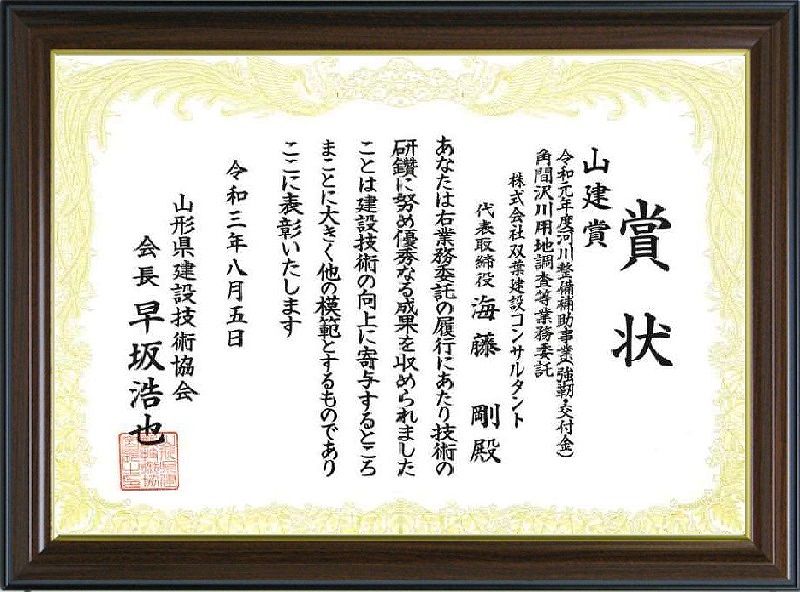 賞状
山建賞
令和元年度河川整備補助事業(強靭・交付金)
角間沢川用地調査等業務委託
株式会社双葉建設コンサルタント
代表取締役 海藤 剛殿
あなたは右業務委託の履行にあたり技術の
研鑽に努め優秀なる成果を収められました
ことは建設技術の向上に寄与するところ
まことに大きく他の模範とするものであり
ここに表彰いたします
令和三年八月五日
山形県建設技術協会
会長 早坂浩也